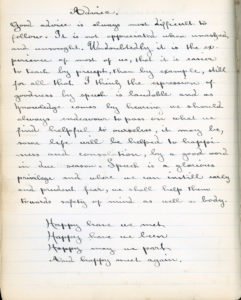 Advice.
Good advice is always most difficult to
follow. It is not appreciated when unasked
and unsought. Undoubtedly it is the ex-
perience of most of us, that it is easier
to teach by precept, than by example, still
for all that I think the expression of
goodness by speech is laudable and as
Knowledge comes by hearing we should
always endeavour to pass on what we
find helpful to ourselves, it may be,
some life will be helped to happi-
ness and consolation, by a good word
in due season. Speech is a glorious
privilege and where we can instill early
and prudent fear, we shall help them
towards safety of mind as well as body.
Happy have we met,
Happy have we been,
Happy may we part,
And happy meet again.